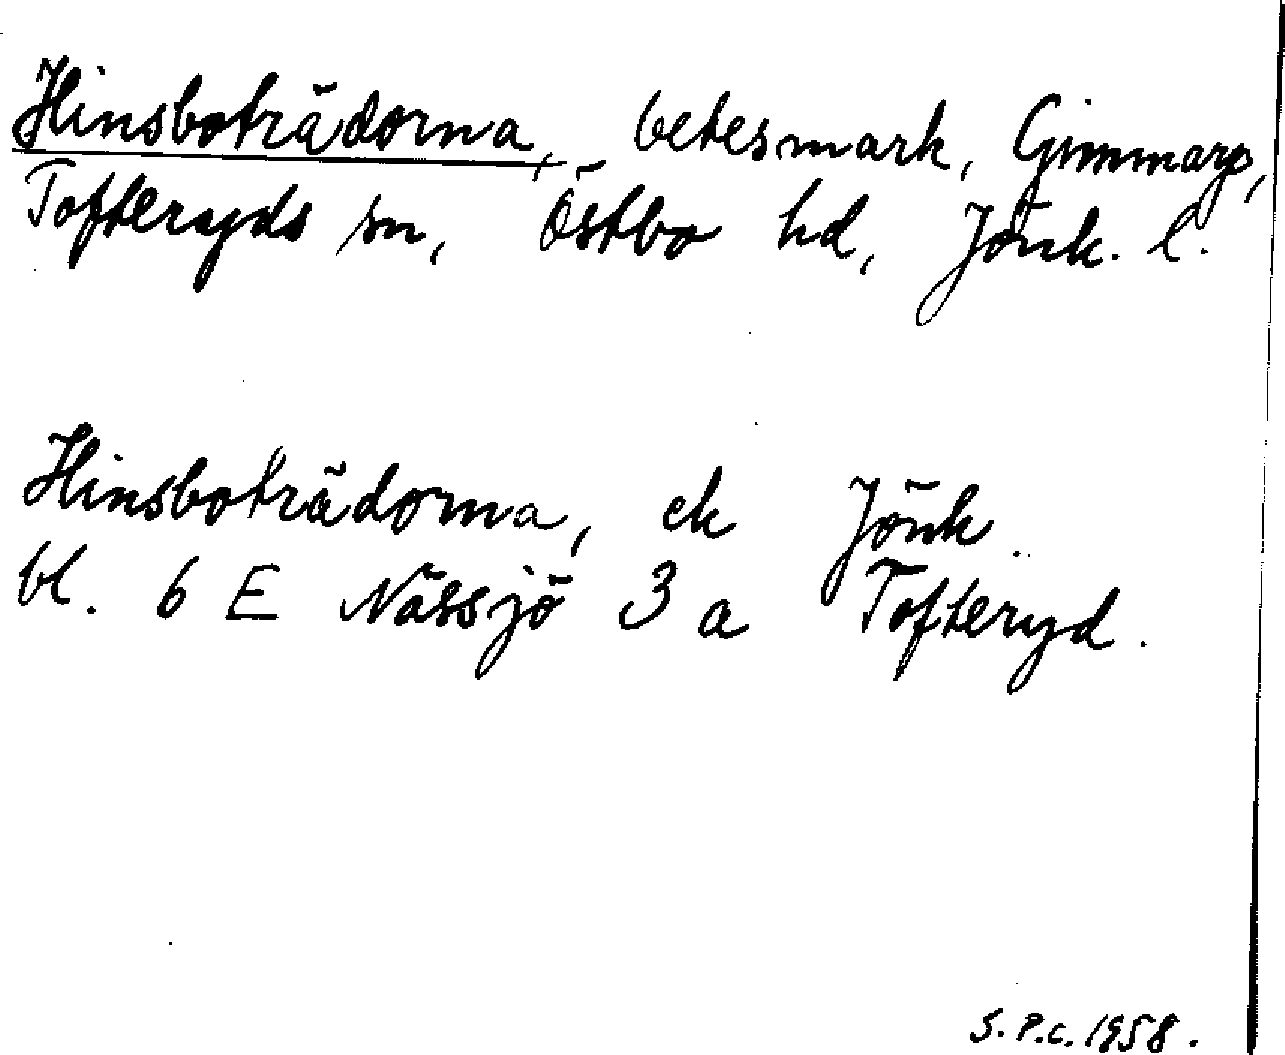 Hinsboträdorna, betesmark, Gimmarp,
Tofteryds sn, Östbo hd, Jönk. l.
Hinsboträdorna, ek Jönk.
bl. 6 E Nässjö 3 a Tofteryd.
S.P.C. 1958.